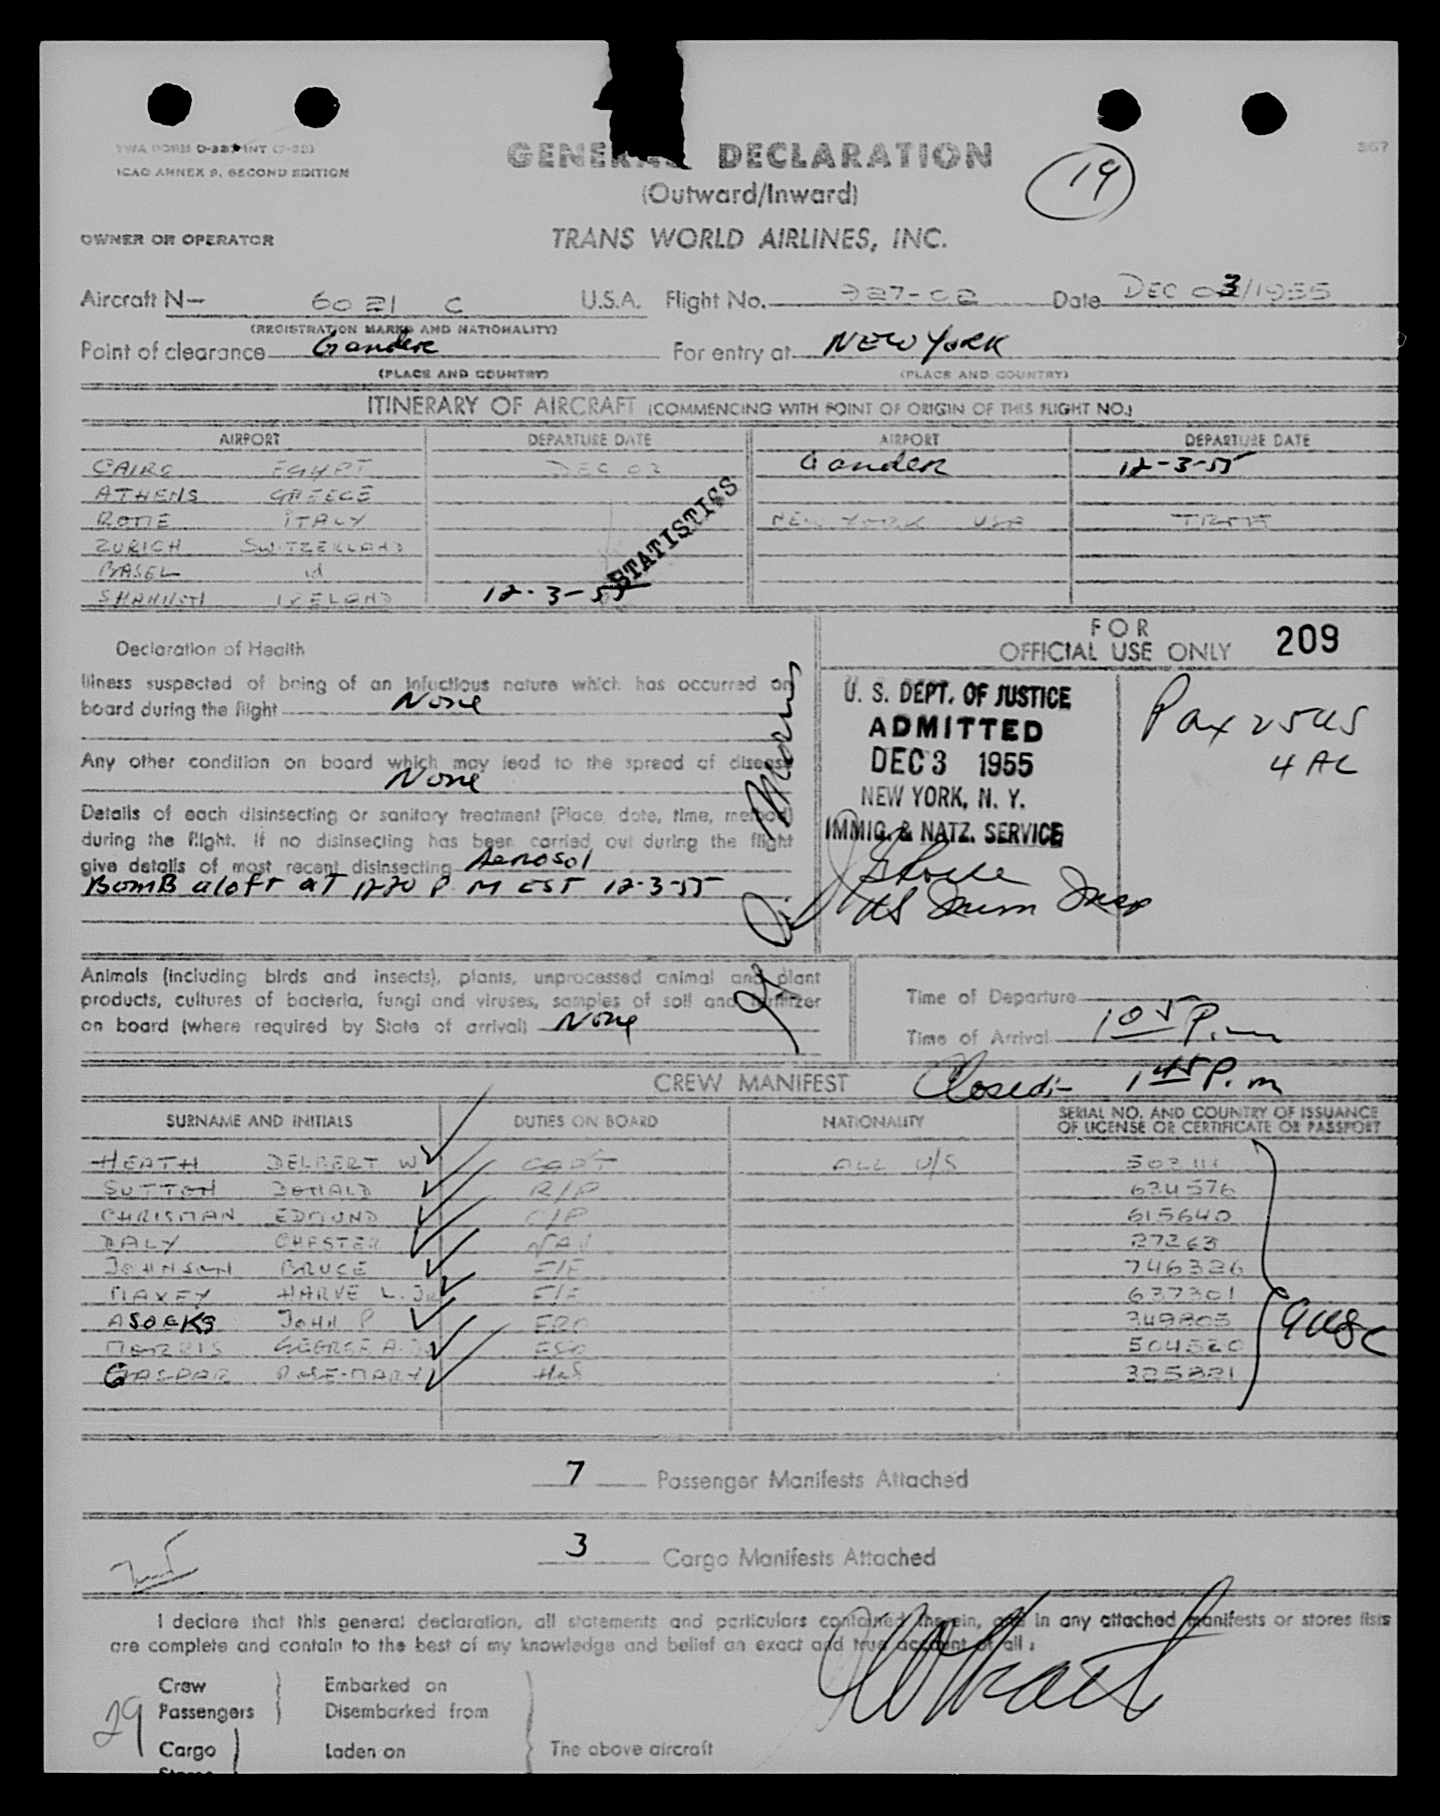 TWA FORM O-337 INT
ICAO ANNEX 9, SECOND EDITION
GENERAL DECLARATION
(Outward/Inward)
19
367
OWNER OR OPERATOR
TRANS WORLD AIRLINES, INC.
Aircraft N— 6021 C U.S.A. Flight No. 927-02 Date DEC 03/1955
(REGISTRATION MARKS AND NATIONALITY)
Point of clearance Gander For entry at NEW YORK
(PLACE AND COUNTRY) (PLACE AND COUNTRY)
ITINERARY OF AIRCRAFT (COMMENCING WITH POINT OF ORIGIN OF THIS FLIGHT NO.)
AIRPORT DEPARTURE DATE AIRPORT DEPARTURE DATE
CAIRO EGYPT DEC 02 Gander 12-3-55
ATHENS GREECE
ROME ITALY NEW YORK USA TRMT
ZURICH SWITZERLAND
BASEL id
SHANNON IRELAND 12-3-55
STATISTICS
Declaration of Health
Illness suspected of being of an infectious nature which has occurred on
board during the flight None
Any other condition on board which may lead to the spread of disease
None
Details of each disinsecting or sanitary treatment (Place, date, time, method)
during the flight. If no disinsecting has been carried out during the flight
give details of most recent disinsecting Aerosol
Bomb aloft at 1220 P M EST 12-3-55
FOR
OFFICIAL USE ONLY 209
U. S. DEPT. OF JUSTICE
ADMITTED
DEC 3 1955
NEW YORK, N. Y.
IMMIG. & NATZ. SERVICE
US Imm Insp
Pax 25 US
4 AL
Animals (including birds and insects), plants, unprocessed animal and plant
products, cultures of bacteria, fungi and viruses, samples of soil and fertilizer
on board (where required by State of arrival) None
Time of Departure
Time of Arrival 1 05 P.m
Closed:- 1 45 P.m
CREW MANIFEST
SURNAME AND INITIALS DUTIES ON BOARD NATIONALITY SERIAL NO. AND COUNTRY OF ISSUANCE
OF LICENSE OR CERTIFICATE OR PASSPORT
HEATH DELBERT W CAPT ALL U/S 503111
SUTTON DONALD R/P 634576
CHRISMAN EDMUND C/P 615640
DALY CHESTER NAV 27263
JOHNSON BRUCE F/E 746326
MAXEY HARVE L. JR F/E 637301
ASOEKS JOHN P ERO 349805
MORRIS GEORGE A. ESO 504520
GASPAR ROSE-MARY H&S 325821
9 USC
7 Passenger Manifests Attached
3 Cargo Manifests Attached
I declare that this general declaration, all statements and particulars contained therein, and in any attached manifests or stores lists
are complete and contain to the best of my knowledge and belief an exact and true account of all :
Crew Embarked on
29 Passengers Disembarked from
Cargo Laden on The above aircraft
Stores